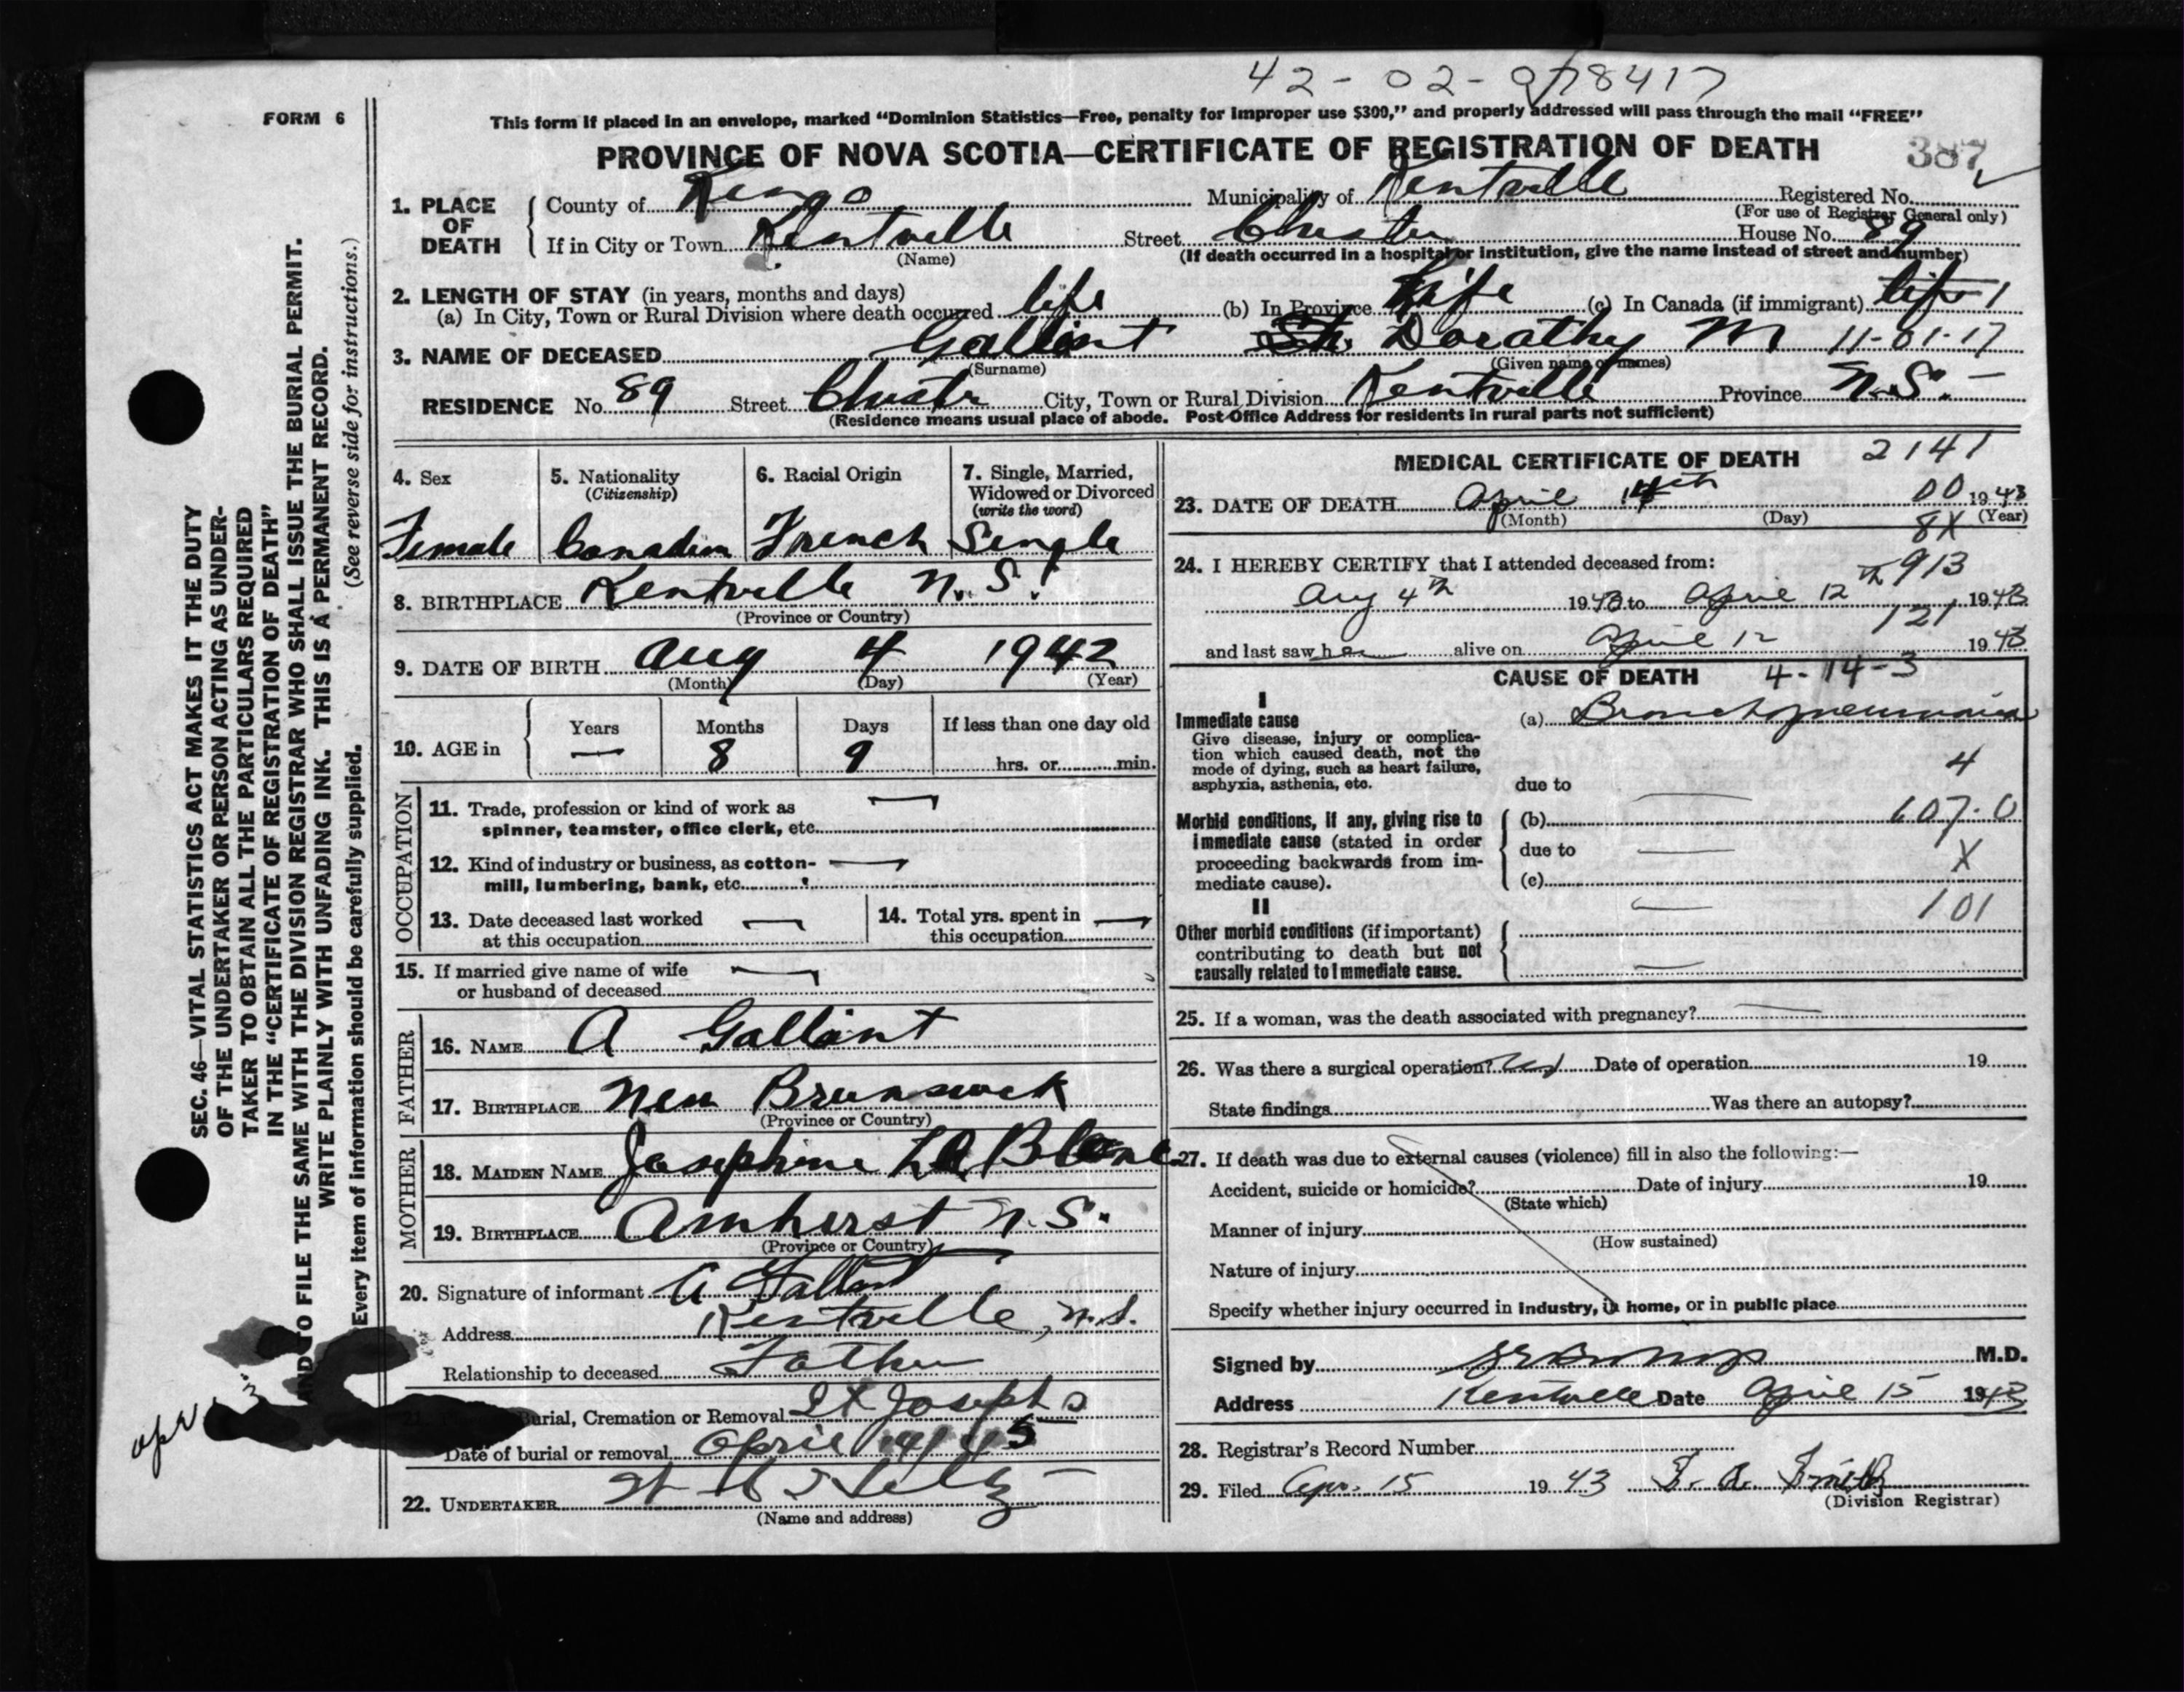 42-02-078417
FORM 6
This form if placed in an envelope, marked "Dominion Statistics—Free, penalty for improper use $300," and properly addressed will pass through the mail "FREE"
PROVINCE OF NOVA SCOTIA—CERTIFICATE OF REGISTRATION OF DEATH
387
1. PLACE OF DEATH
County of Kings Municipality of Kentville Registered No.
(For use of Registrar General only)
If in City or Town Kentville Street Chester House No. 89
(Name) (If death occurred in a hospital or institution, give the name instead of street and number)
2. LENGTH OF STAY (in years, months and days)
(a) In City, Town or Rural Division where death occurred life (b) In Province Life (c) In Canada (if immigrant) life 1
3. NAME OF DECEASED Gallant Dorathy M 11-01-17
(Surname) (Given name or names)
RESIDENCE No. 89 Street Chester City, Town or Rural Division Kentville Province N.S. –
(Residence means usual place of abode. Post-Office Address for residents in rural parts not sufficient)
SEC. 46—VITAL STATISTICS ACT MAKES IT THE DUTY
OF THE UNDERTAKER OR PERSON ACTING AS UNDER-
TAKER TO OBTAIN ALL THE PARTICULARS REQUIRED
IN THE "CERTIFICATE OF REGISTRATION OF DEATH"
AND TO FILE THE SAME WITH THE DIVISION REGISTRAR WHO SHALL ISSUE THE BURIAL PERMIT.
WRITE PLAINLY WITH UNFADING INK. THIS IS A PERMANENT RECORD.
(See reverse side for instructions.)
Every item of information should be carefully supplied.
4. Sex 5. Nationality 6. Racial Origin 7. Single, Married,
(Citizenship) Widowed or Divorced
(write the word)
Female Canadian French Single
8. BIRTHPLACE Kentville N.S.
(Province or Country)
9. DATE OF BIRTH Aug 4 1942
(Month) (Day) (Year)
Years Months Days If less than one day old
10. AGE in — 8 9 hrs. or min.
OCCUPATION
11. Trade, profession or kind of work as
spinner, teamster, office clerk, etc.
12. Kind of industry or business, as cotton-
mill, lumbering, bank, etc.
13. Date deceased last worked
at this occupation
14. Total yrs. spent in
this occupation
15. If married give name of wife
or husband of deceased
FATHER
16. NAME A Gallant
17. BIRTHPLACE New Brunswick
(Province or Country)
MOTHER
18. MAIDEN NAME Josephine Le Blanc
19. BIRTHPLACE Amherst N.S.
(Province or Country)
20. Signature of informant A Gallant
Address Kentville, N.S.
Relationship to deceased Father
Burial, Cremation or Removal St Josephs
Date of burial or removal April
22. UNDERTAKER
(Name and address)
MEDICAL CERTIFICATE OF DEATH 2141
23. DATE OF DEATH April 14th 00 1943
(Month) (Day) (Year)
8X
24. I HEREBY CERTIFY that I attended deceased from: 913
Aug 4th 1943 to April 12th 1943
121
and last saw her alive on April 12 1943
CAUSE OF DEATH 4-14-3
I
Immediate cause
Give disease, injury or complica-
tion which caused death, not the
mode of dying, such as heart failure,
asphyxia, asthenia, etc.
(a) Bronchopneumonia
4
due to
Morbid conditions, if any, giving rise to
immediate cause (stated in order
proceeding backwards from im-
mediate cause).
(b) 107-0
due to X
(c)
101
II
Other morbid conditions (if important)
contributing to death but not
causally related to immediate cause.
25. If a woman, was the death associated with pregnancy?
26. Was there a surgical operation? Date of operation 19
State findings Was there an autopsy?
27. If death was due to external causes (violence) fill in also the following:—
Accident, suicide or homicide? Date of injury 19
(State which)
Manner of injury
(How sustained)
Nature of injury
Specify whether injury occurred in industry, in home, or in public place
Signed by M.D.
Address Kentville Date April 15 1943
28. Registrar's Record Number
29. Filed Apr. 15 1943 Smith
(Division Registrar)